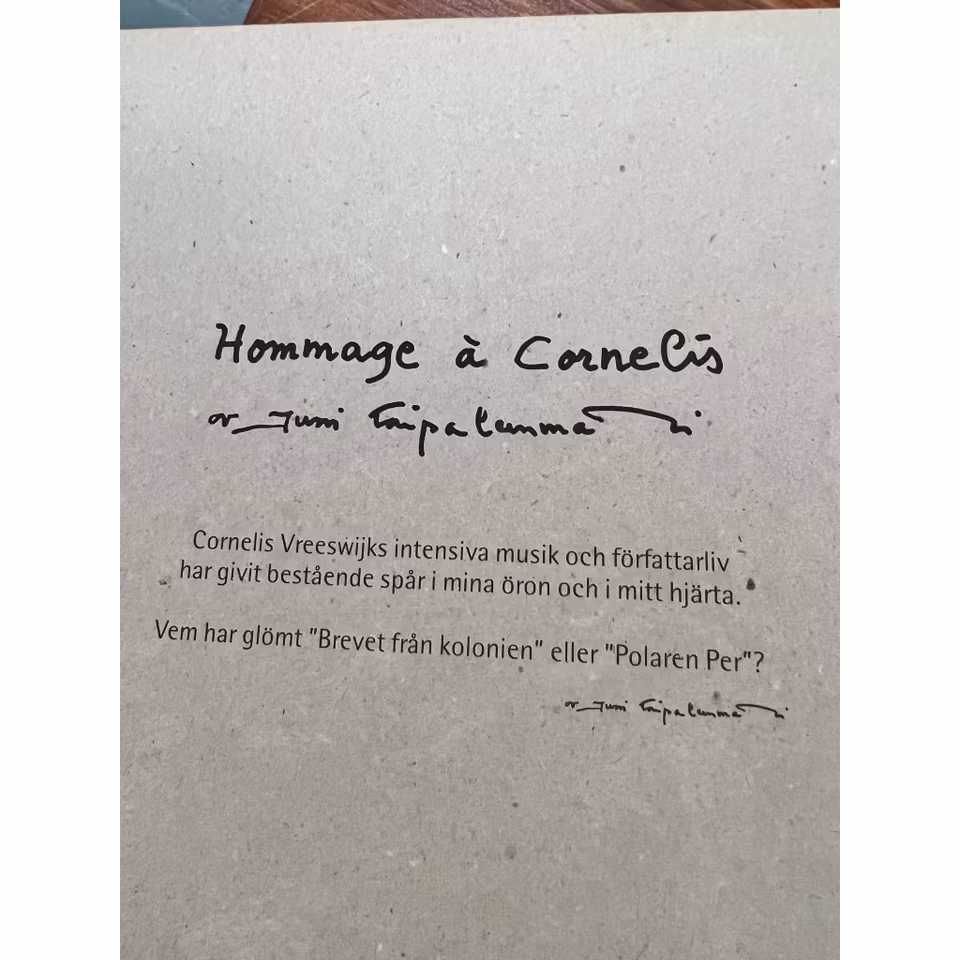 Hommage à Cornelis
av Jussi Taipalemmäki
Cornelis Vreeswijks intensiva musik och författarliv
har givit bestående spår i mina öron och i mitt hjärta.
Vem har glömt "Brevet från kolonien" eller "Polaren Per"?
av Jussi Taipalemmäki